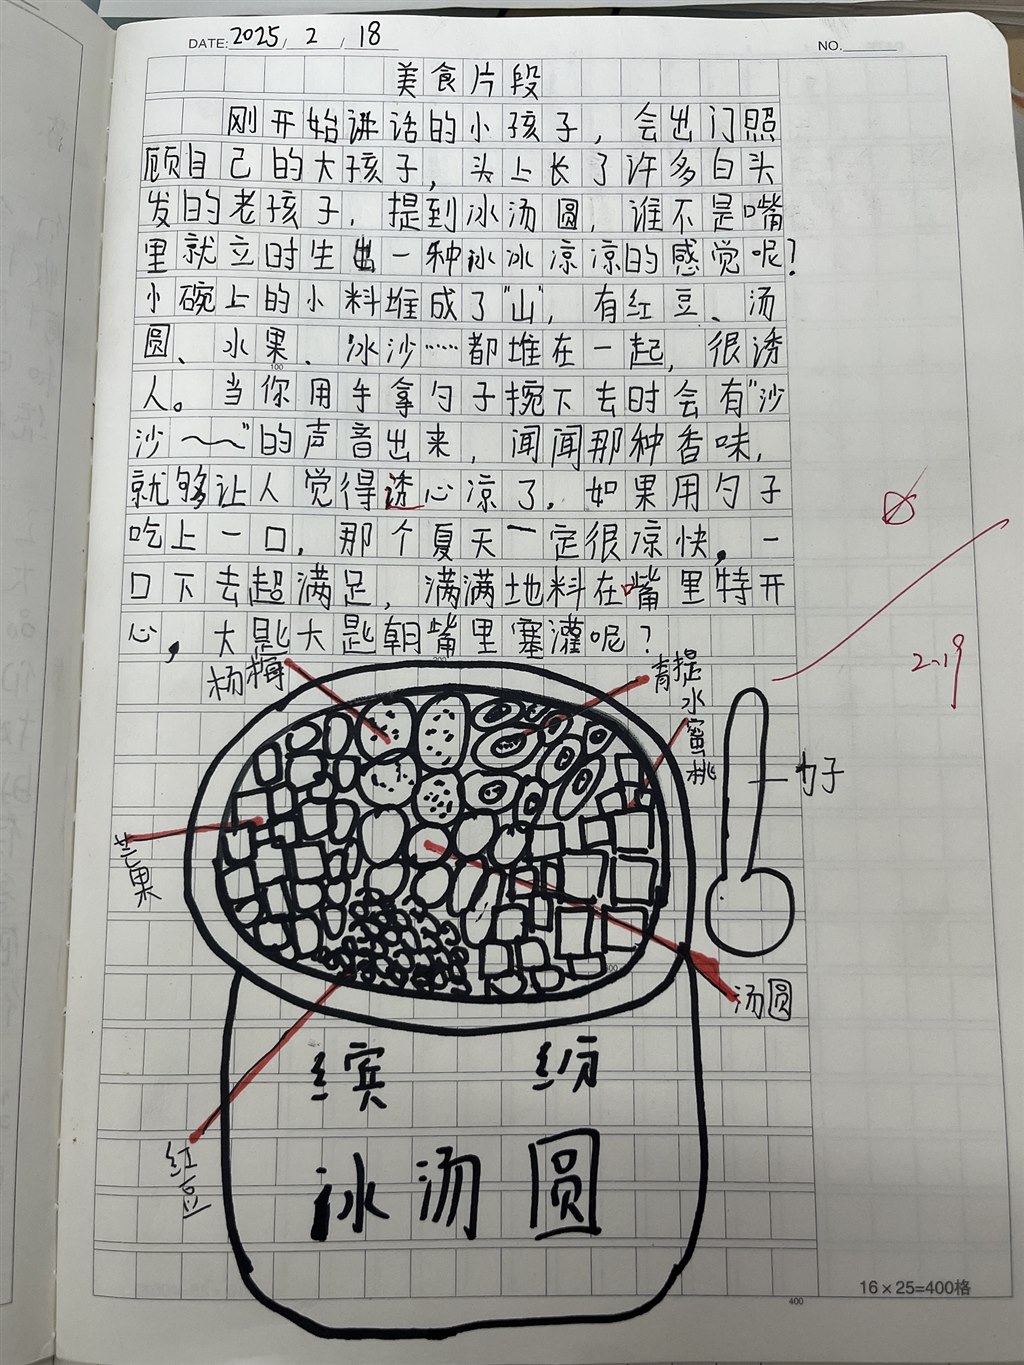 DATE: 2025 / 2 / 18
NO.
美食片段
刚开始讲话的小孩子，会出门照
顾自己的大孩子，头上长了许多白头
发的老孩子，提到冰汤圆，谁不是嘴
里就立时生出一种冰冰凉凉的感觉呢？
小碗上的小料堆成了"山"，有红豆、汤
圆、水果、冰沙……都堆在一起，很诱
100
人。当你用手拿勺子㧚下去时会有"沙
沙～～"的声音出来，闻闻那种香味，
就够让人觉得透心凉了。如果用勺子
吃上一口，那个夏天一定很凉快，一
口下去超满足，满满地料在嘴里特开
心，大匙大匙朝嘴里塞灌呢？
200
2.19
杨梅
青提
水蜜桃
勺子
芒果
300
汤圆
红豆
缤纷
冰汤圆
16×25=400格
400